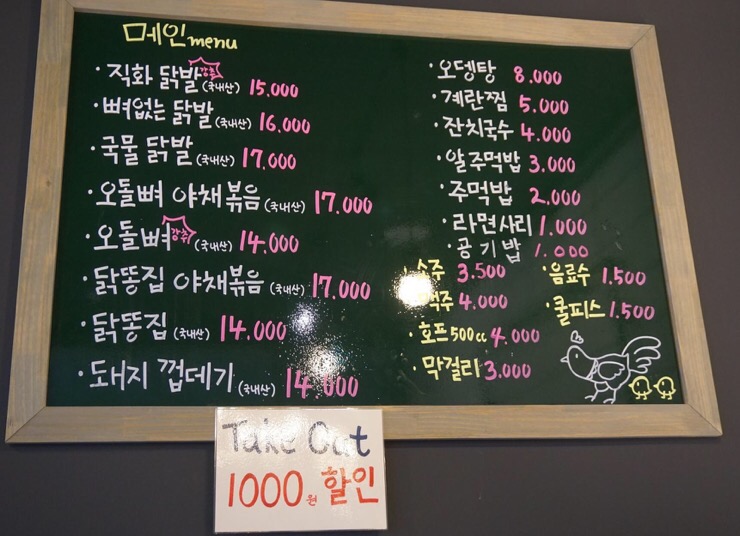 메인 menu
· 직화 닭발 강추 (국내산) 15.000
· 뼈없는 닭발 (국내산) 16.000
· 국물 닭발 (국내산) 17.000
· 오돌뼈 야채볶음 (국내산) 17.000
· 오돌뼈 강추 (국내산) 14.000
· 닭똥집 야채볶음 (국내산) 17.000
· 닭똥집 (국내산) 14.000
· 돼지 껍데기 (국내산) 14.000
· 오뎅탕 8.000
· 계란찜 5.000
· 잔치국수 4.000
· 알주먹밥 3.000
· 주먹밥 2.000
· 라면사리 1.000
· 공기밥 1.000
소주 3.500
맥주 4.000
· 호프 500cc 4.000
· 막걸리 3.000
· 음료수 1.500
· 쿨피스 1.500
Take Out
1000원 할인